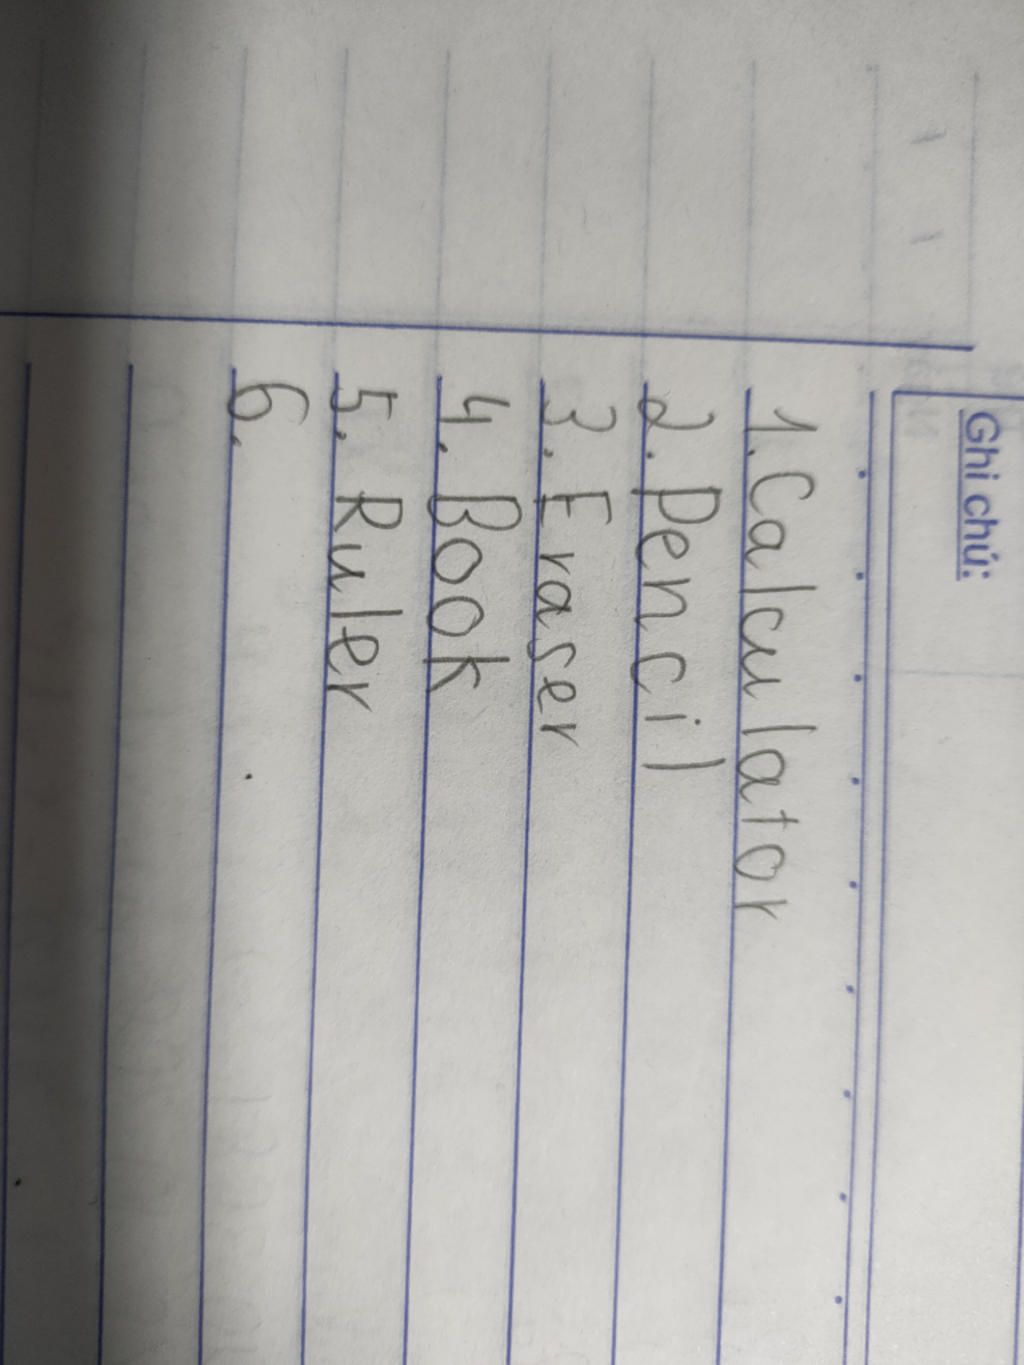 Ghi chú:
1. Calculator
2. Pencil
3. Eraser
4. Book
5. Ruler
6.